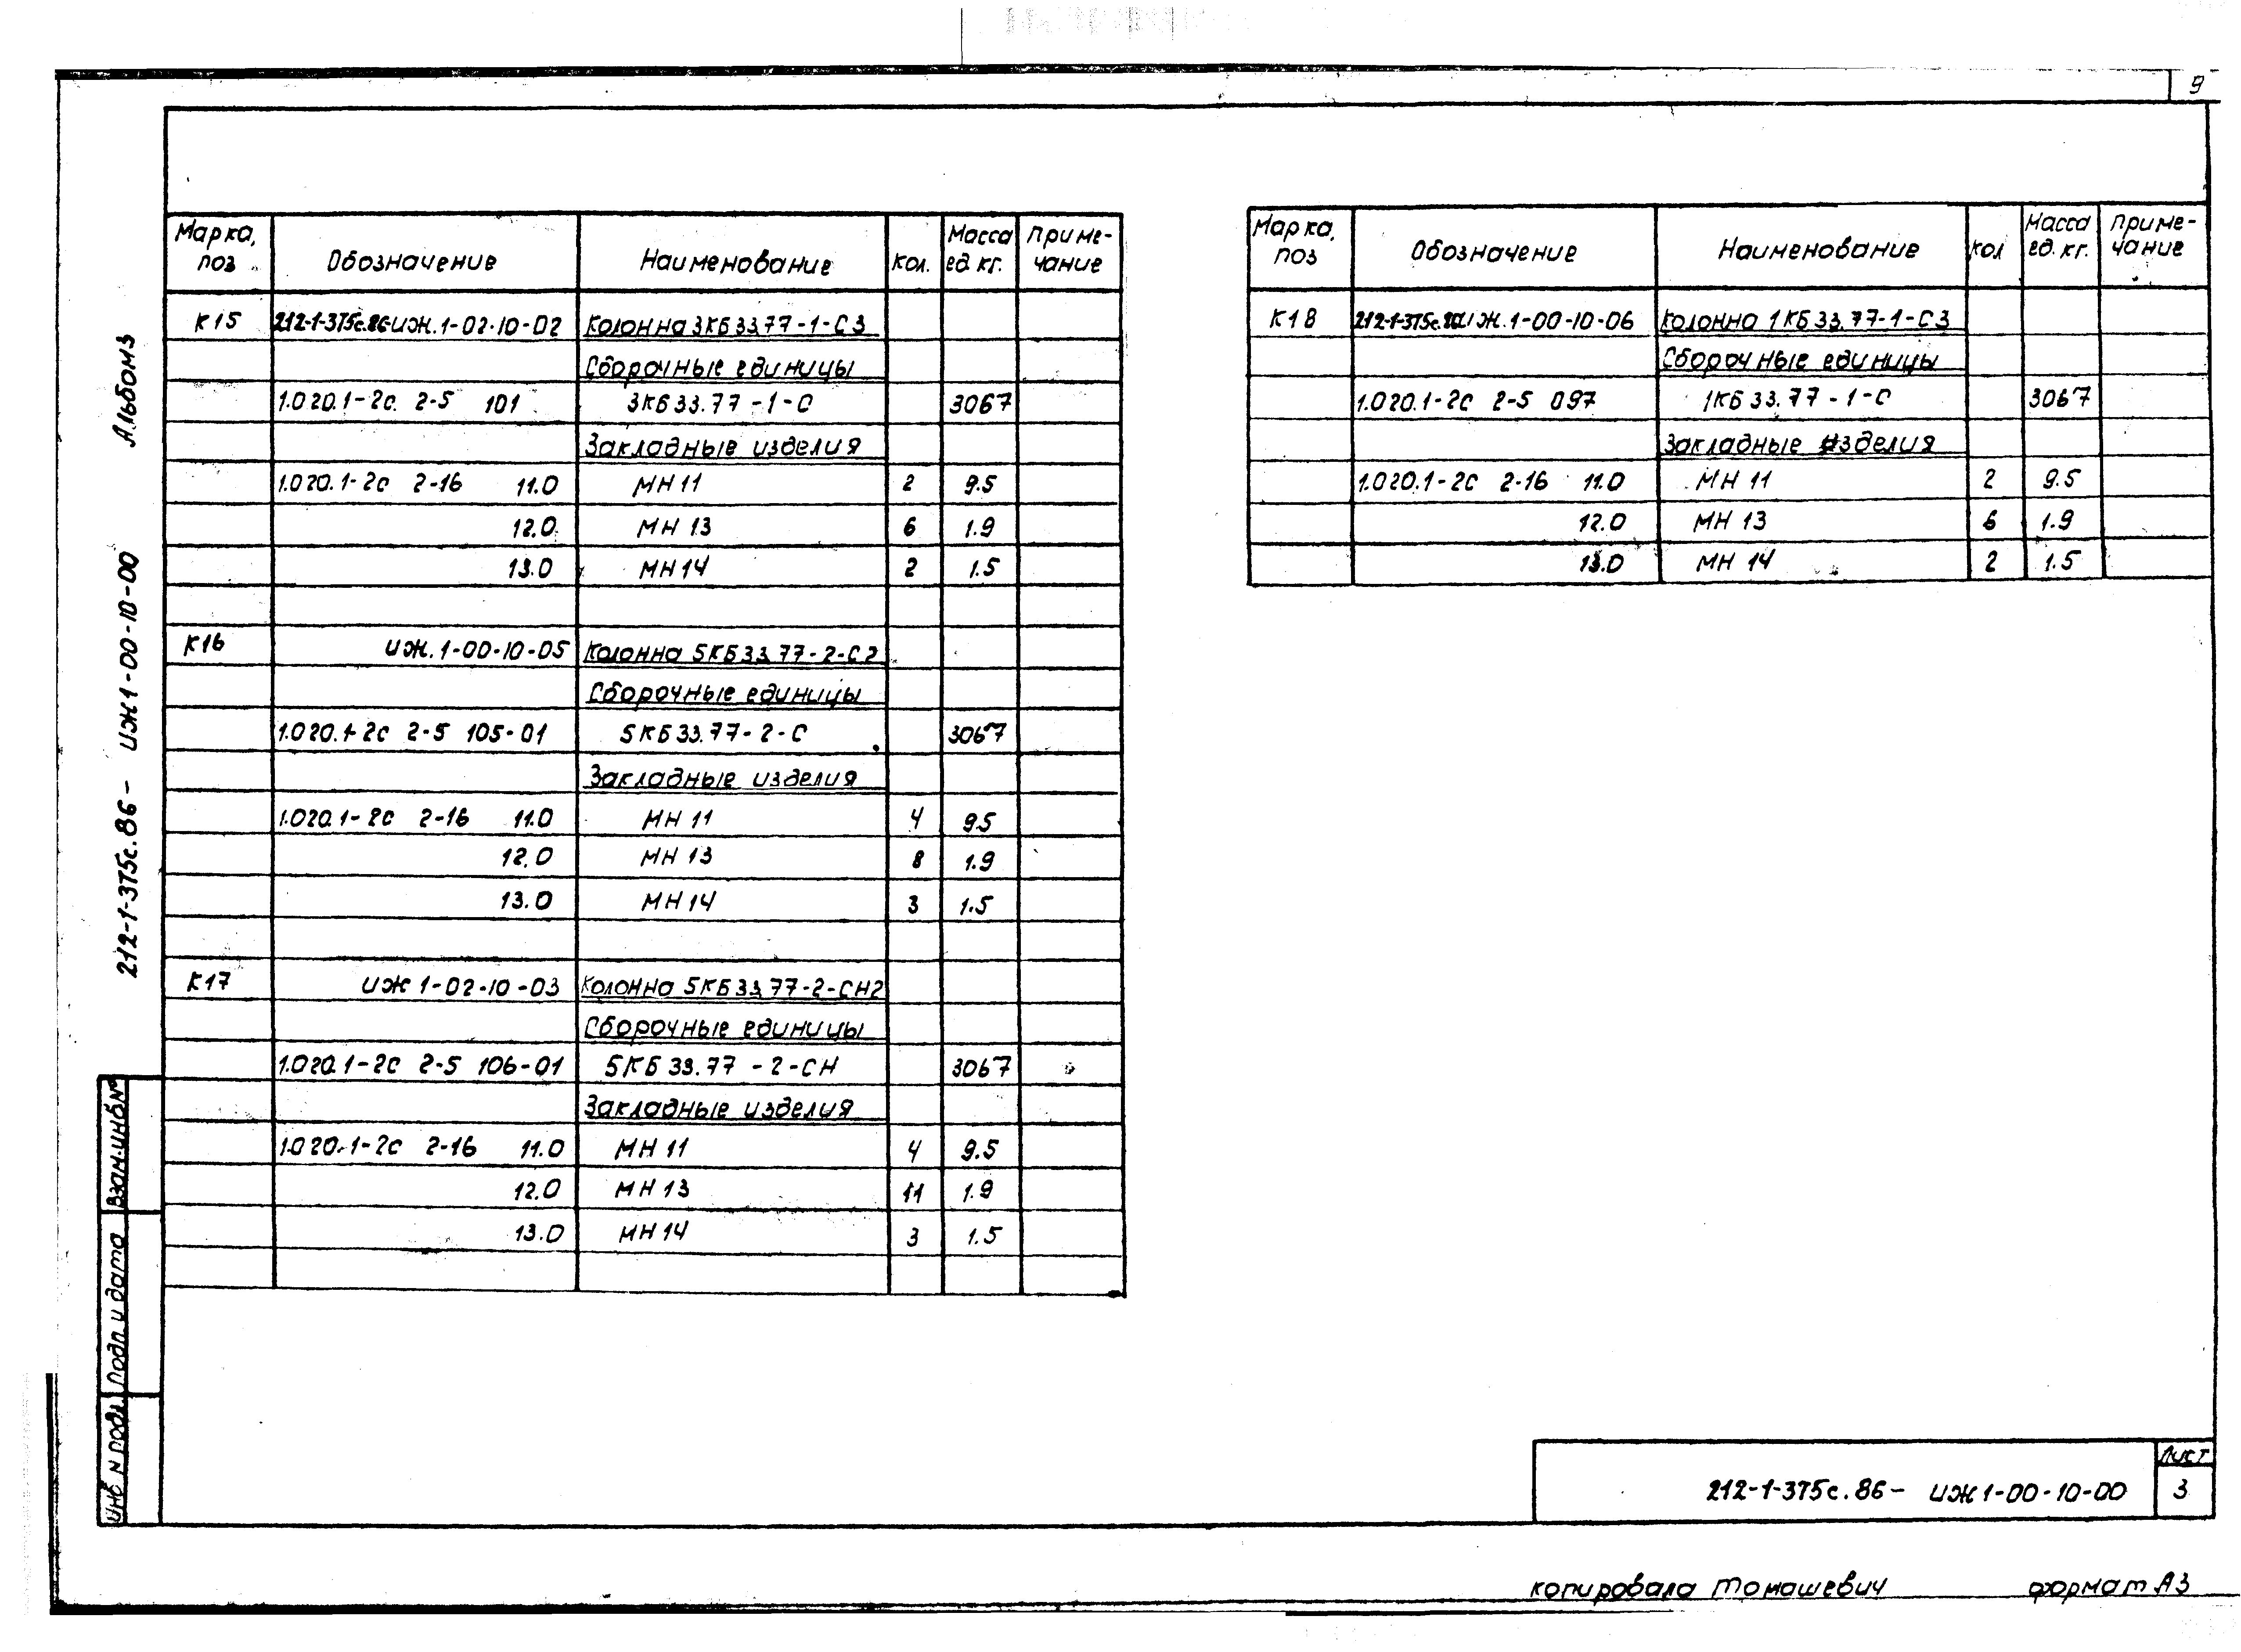 9
Альбом 3
212-1-375с.86- ИЖ1-00-10-00
Марка, поз Обозначение Наименование кол. Масса ед кг. Приме-чание
К15 212-1-375с.86-ИЖ.1-02-10-02 Колонна 3КБ33.77-1-С3
Сборочные единицы
1.020.1-2с. 2-5 101 3КБ33.77-1-С 3067
Закладные изделия
1.020.1-2с 2-16 11.0 МН 11 2 9.5
12.0 МН 13 6 1.9
13.0 МН 14 2 1.5
К16 ИЖ.1-00-10-05 Колонна 5КБ33.77-2-С2
Сборочные единицы
1.020.1-2с 2-5 105-01 5КБ33.77-2-С 3067
Закладные изделия
1.020.1-2с 2-16 11.0 МН 11 4 9.5
12.0 МН 13 8 1.9
13.0 МН 14 3 1.5
К17 ИЖ 1-02-10-03 Колонна 5КБ33.77-2-СН2
Сборочные единицы
1.020.1-2с 2-5 106-01 5КБ33.77-2-СН 3067
Закладные изделия
1.020.1-2с 2-16 11.0 МН 11 4 9.5
12.0 МН 13 11 1.9
13.0 МН 14 3 1.5
Марка, поз Обозначение Наименование кол Масса ед. кг. Приме-чание
К18 212-1-375с.86ИЖ.1-00-10-06 Колонна 1КБ33.77-1-С3
Сборочные единицы
1.020.1-2с 2-5 097 1КБ33.77-1-С 3067
Закладные изделия
1.020.1-2с 2-16 11.0 МН 11 2 9.5
12.0 МН 13 6 1.9
13.0 МН 14 2 1.5
Взам.инв№
Подп и дата
Инв N подл
212-1-375с.86- ИЖ1-00-10-00
Лист
3
копировала Томашевич формат А3